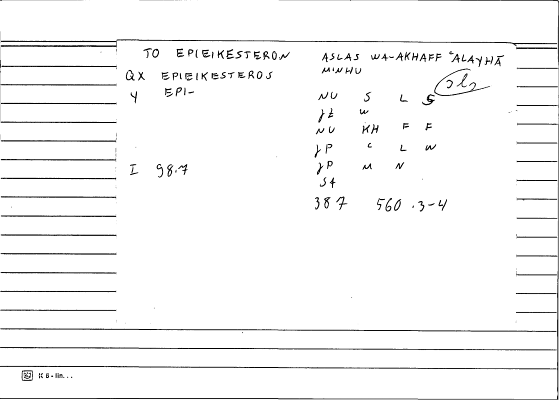 TO EPIEIKESTERON
QX EPIEIKESTEROS
Y EPI-
I 98.7
ASLAS WA-AKHAFF ʿALAYHĀ
MINHU
NU S L S
JL W
NU KH F F
JP ʿ L W
JP M N
S4
387 560 .3-4
K 6 - lin...